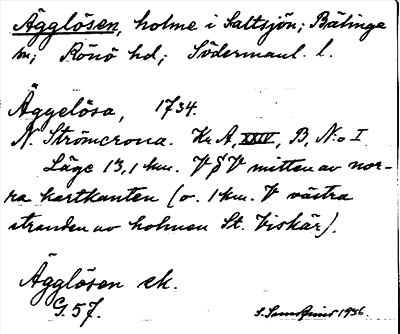 Ägglösen, holme i Saltsjön; Bälinge
sn; Rönö hd; Södermanl. l.
Äggelösa, 1734.
N. Strömcrona. Kr. A, XXIV, B, N:o I
Läge 13,1 km. V § V mitten av nor-
ra kartkanten (o. 1 km. V västra
stranden av holmen St. Viskär).
Ägglösen ek.
G. 57.
1936.